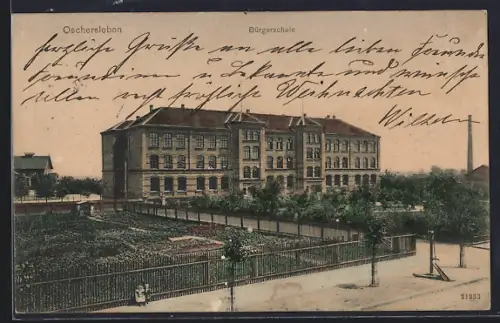 Oschersleben Bürgerschule
Herzliche Grüße an alle lieben Freunde
Freundinnen u. Bekannte und wünsche
allen recht fröhliche Weihnachten
Wilhelm
21953